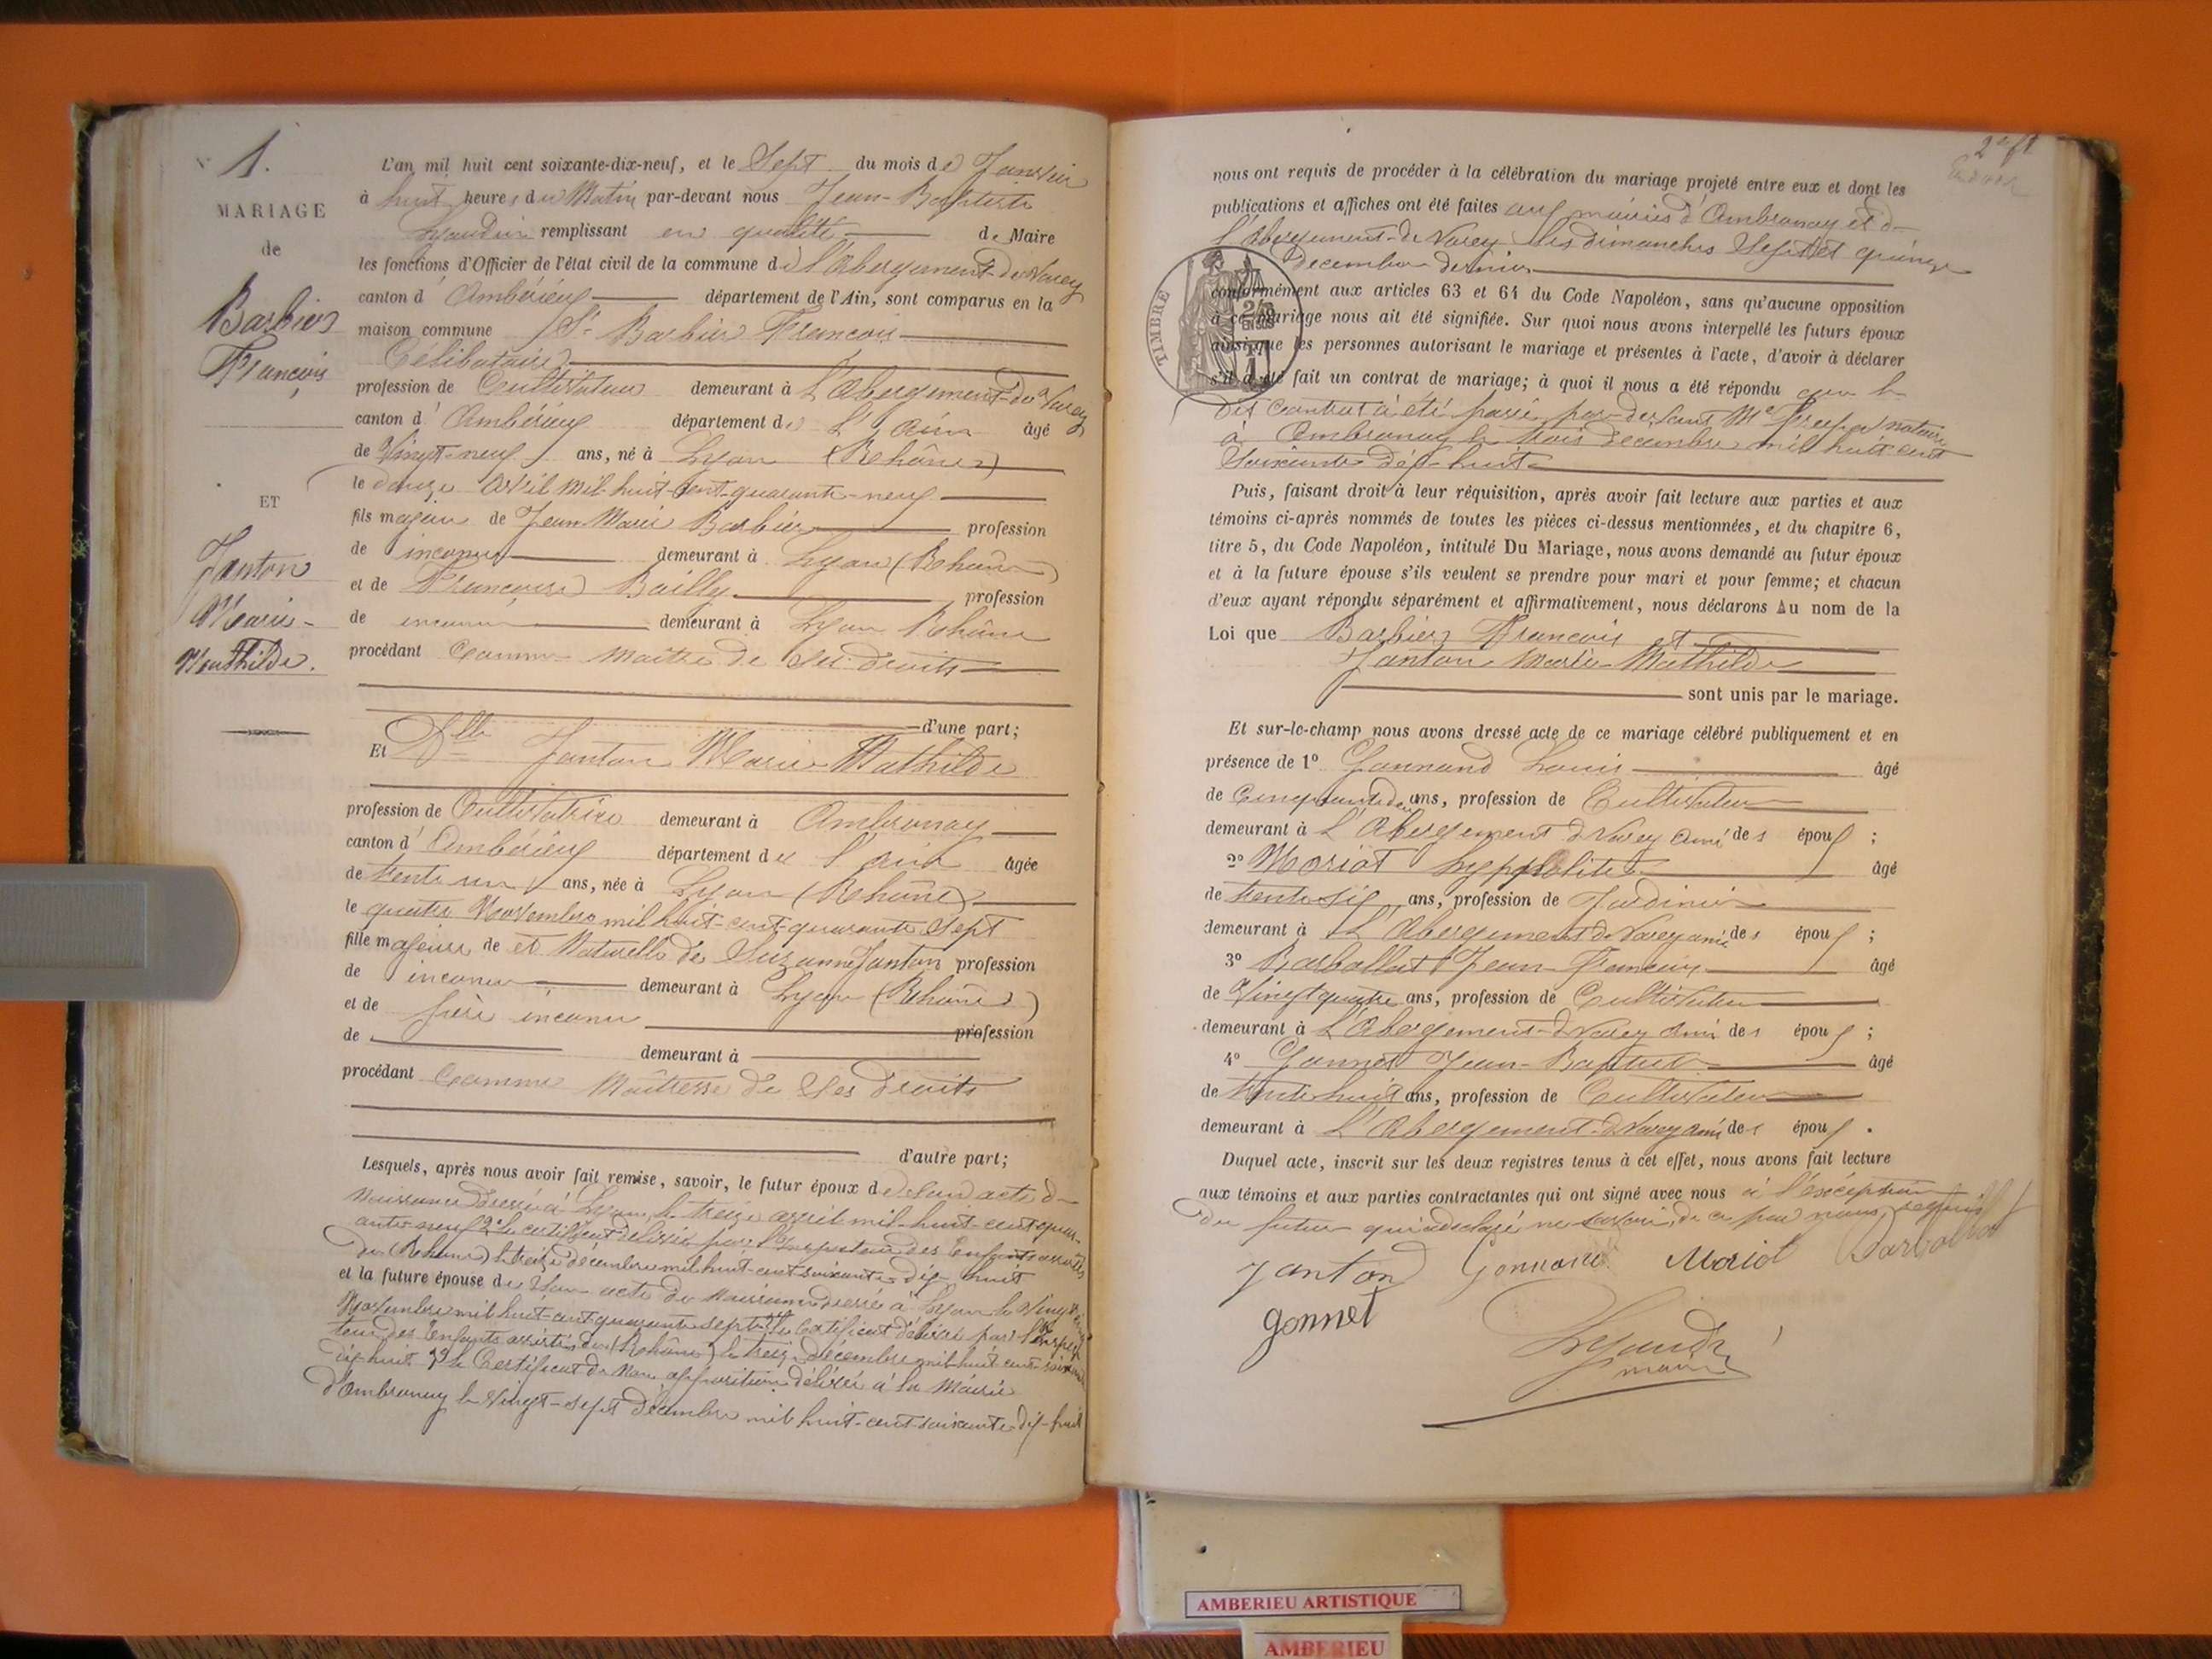 N° 1.
MARIAGE
de
Barbier
François
ET
Janton
Marie-
Mathilde.
L'an mil huit cent soixante-dix-neuf, et le Sept du mois de Janvier
à huit heures du Matin par-devant nous Jean-Baptiste
remplissant en qualité de Maire
les fonctions d'Officier de l'état civil de la commune de l'Abergement-de-Varey
canton d'Ambérieux département de l'Ain, sont comparus en la
maison commune Sr Barbier François
Célibataire
profession de Cultivateur demeurant à L'Abergement-de-Varey
canton d'Ambérieux département de L'Ain âgé
de Vingt-neuf ans, né à Lyon (Rhône)
le douze Avril mil-huit-Cent-quarante-neuf
fils majeur de Jean Marie Barbier profession
de inconnue demeurant à Lyon (Rhône)
et de Françoise Bailly profession
de inconnue demeurant à Lyon Rhône
procédant Comme Maître de Ses droits
d'une part;
Et Dlle Janton Marie-Mathilde
profession de Cultivatrice demeurant à Ambronay
canton d'Ambérieux département de l'Ain âgée
de trente un ans, née à Lyon (Rhône)
le quatre Novembre mil huit-cent-quarante Sept
fille majeure de et Naturelle de Suzanne Janton profession
de inconnue demeurant à Lyon (Rhône)
et de père inconnu
de profession
demeurant à
procédant Comme Maîtresse de Ses droits
d'autre part;
Lesquels, après nous avoir fait remise, savoir, le futur époux de Son acte de
Naissance dressé à Lyon le treize avril mil-huit-cent-quar-
ante-neuf 2° le certificat délivré par l'Inspecteur des Enfants assistés
du (Rhône) le treize décembre mil huit-cent soixante-dix-huit
et la future épouse de Son acte de Naissance dressé à Lyon le Vingt
Novembre mil huit-cent quarante sept 2° le Certificat délivré par l'Inspec
teur des Enfants assistés du (Rhône) le treize Décembre mil huit cent soixante
dix-huit 3° le Certificat de Non opposition délivré à la Mairie
d'Ambronay le Vingt-sept décembre mil huit-cent-soixante-dix-huit
nous ont requis de procéder à la célébration du mariage projeté entre eux et dont les
publications et affiches ont été faites aux mairies d'Ambronay et de
l'Abergement-de-Varey les dimanches Sept et quinze
décembre dernier
conformément aux articles 63 et 64 du Code Napoléon, sans qu'aucune opposition
à ce mariage nous ait été signifiée. Sur quoi nous avons interpellé les futurs époux
ainsi que les personnes autorisant le mariage et présentes à l'acte, d'avoir à déclarer
s'il a été fait un contrat de mariage; à quoi il nous a été répondu que le
dit Contrat à été passé par-devant Me notaire
à Ambronay le trois décembre mil huit cent
Soixante dix-huit
TIMBRE
Puis, faisant droit à leur réquisition, après avoir fait lecture aux parties et aux
témoins ci-après nommés de toutes les pièces ci-dessus mentionnées, et du chapitre 6,
titre 5, du Code Napoléon, intitulé Du Mariage, nous avons demandé au futur époux
et à la future épouse s'ils veulent se prendre pour mari et pour femme; et chacun
d'eux ayant répondu séparément et affirmativement, nous déclarons Au nom de la
Loi que Barbier François et
Janton Marie-Mathilde
sont unis par le mariage.
Et sur-le-champ nous avons dressé acte de ce mariage célébré publiquement et en
présence de 1° Gonnand Louis âgé
de Cinquante deux ans, profession de Cultivateur
demeurant à L'Abergement de Varey ami des époux ;
2° Moriot Hyppolite âgé
de trente six ans, profession de Jardinier
demeurant à L'Abergement de Varey ami des époux ;
3° Barballat Jean-François âgé
de Vingt quatre ans, profession de Cultivateur
demeurant à L'Abergement-de Varey ami des époux ;
4° Gonnet Jean-Baptiste âgé
de trente huit ans, profession de Cultivateur
demeurant à L'Abergement-de Varey ami des époux .
Duquel acte, inscrit sur les deux registres tenus à cet effet, nous avons fait lecture
aux témoins et aux parties contractantes qui ont signé avec nous à l'exception
du futur qui a déclaré ne savoir, de ce par nous requis
Janton Gonnand Moriot Barballat
gonnet
maire
AMBERIEU ARTISTIQUE
AMBERIEU